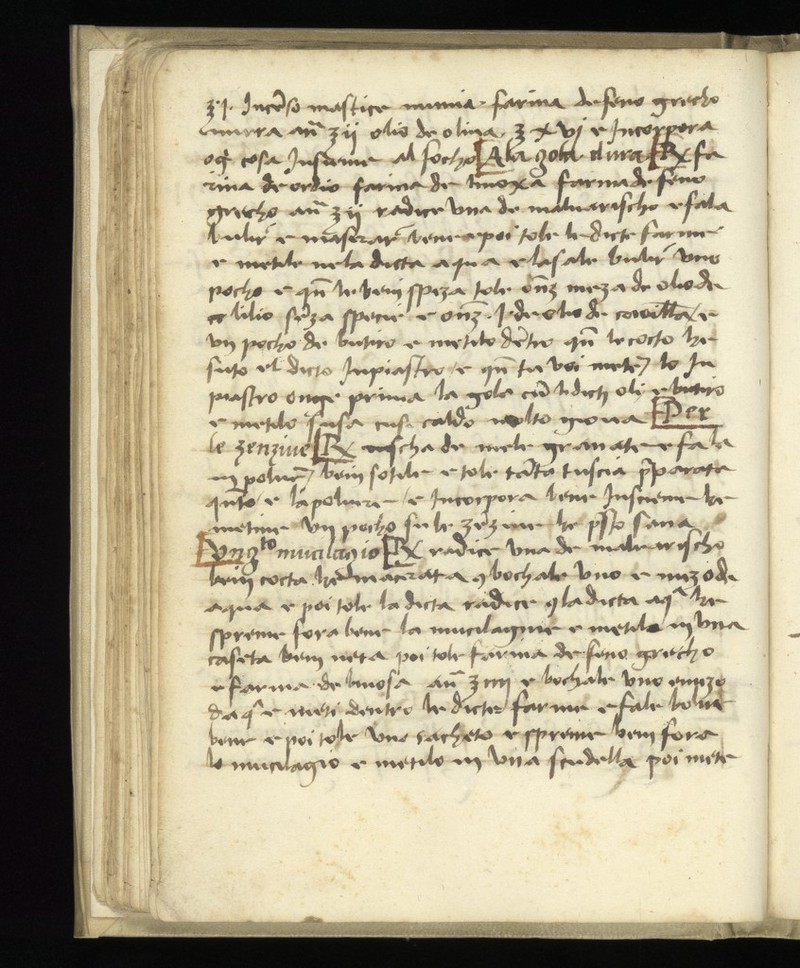 ʒ j. Incẽso mastice mumia. farina de feno grecho
mirra añ ʒ ij olio de oliua. ʒ x vj e Incorpora
cosa Insieme al focho A la gola dura ℞ fa
rina de ordio farina de linoxa farina de feno
grecho añ ʒ ij radice vna de maluarischo e fala
bulir e maserar bene e poi tole le dicte farine
e metile ne la dicta aqua e lasale bulir vno
pocho e qñ le ben speza tole onz meza de olio de
lilio sẽza specie e onz. j. de olio de camilla e
vn pocho de butiro e metilo dẽtro qñ le cocto he
fato el dicto Inpiastro e qñ tu voi meter lo In
piastro onge prima la gola cũ li dicti oli e butiro
e metilo susa cusi caldo molto gioua Per
le zenziue ℞ scha de mele granate e fa la
in poluer ben sotile e tole tãta tuscia p̃parata
qñto e la poluere e Incorpora bene Insieme he
metine vn pocho su le zẽzine he p̃sto sana
Vngto mucilagio ℞ radice vna de maluarischo
ben cocta he macerata bochale vno e mezo de
aqua e poi tole la dicta radice la dicta aq̃ he
spreme fora bene la mucilagine e metilo in vna
caseta ben neta poi tole farina de feno grecho
e farina de linosa añ ʒ iiij e bochale vno e mezo
daq̃ e meti dentro le dicte farine e fale bolire
bene e poi tole vno sacheto e spreme ben fora
lo mucilagio e metilo in vna scudella poi mete